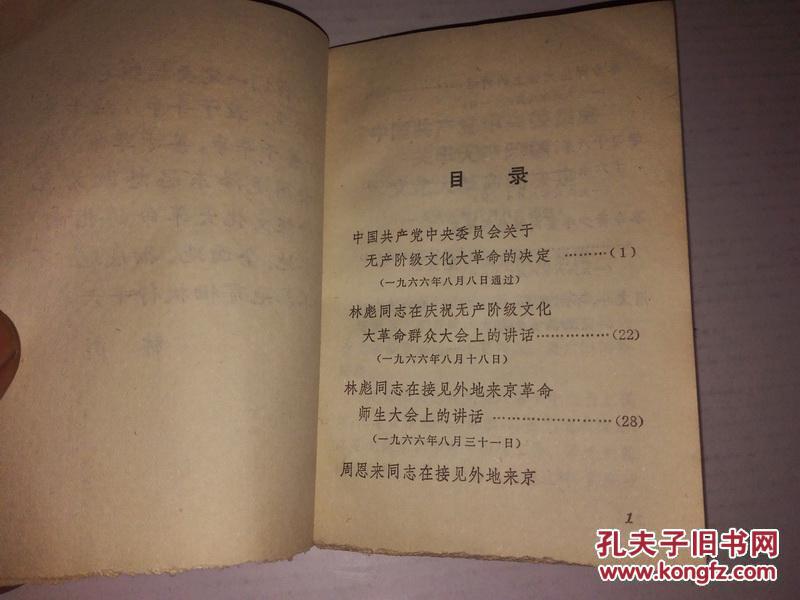 目 录
中国共产党中央委员会关于
无产阶级文化大革命的决定 ………(1)
(一九六六年八月八日通过)
林彪同志在庆祝无产阶级文化
大革命群众大会上的讲话……………(22)
(一九六六年八月十八日)
林彪同志在接见外地来京革命
师生大会上的讲话 …………………(28)
(一九六六年八月三十一日)
周恩来同志在接见外地来京
1
孔夫子旧书网
www.kongfz.com